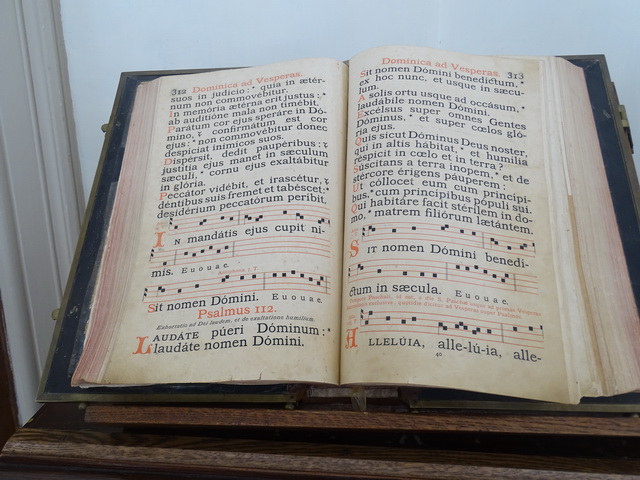 312 Dominica ad Vesperas.
suos in judicio: * quia in ætér-
num non commovébitur.
In memória ætérna erit justus: *
ab auditióne mala non timébit.
Parátum cor ejus speráre in Dó-
mino, ꝛ confirmátum est cor
ejus: * non commovébitur donec
despíciat inimícos suos.
Dispérsit, dedit paupéribus: ꝛ
justítia ejus manet in sǽculum
sǽculi, * cornu ejus exaltábitur
in glória.
Peccátor vidébit, et irascétur, ꝛ
déntibus suis fremet et tabéscet: *
desidérium peccatórum períbit.
IN mandátis ejus cupit ni-
mis. E u o u a e.
Sit nomen Dómini. E u o u a e.
Psalmus 112.
Exhortatio ad Dei laudem, et de exaltatione humilium.
LAUDÁTE púeri Dóminum: *
laudáte nomen Dómini.
Dominica ad Vesperas. 313
Sit nomen Dómini benedíctum, *
ex hoc nunc, et usque in sǽcu-
lum.
A solis ortu usque ad occásum, *
laudábile nomen Dómini.
Excélsus super omnes Gentes
Dóminus, * et super cœlos gló-
ria ejus.
Quis sicut Dóminus Deus noster,
qui in altis hábitat, * et humília
réspicit in cœlo et in terra?
Súscitans a terra ínopem, * et de
stércore érigens páuperem:
Ut cóllocet eum cum princípi-
bus, * cum princípibus pópuli sui.
Qui habitáre facit stérilem in do-
mo, * matrem filiórum lætántem.
SIT nomen Dómini benedí-
ctum in sǽcula. E u o u a e.
ALLELÚIA, alle-lú-ia, alle-